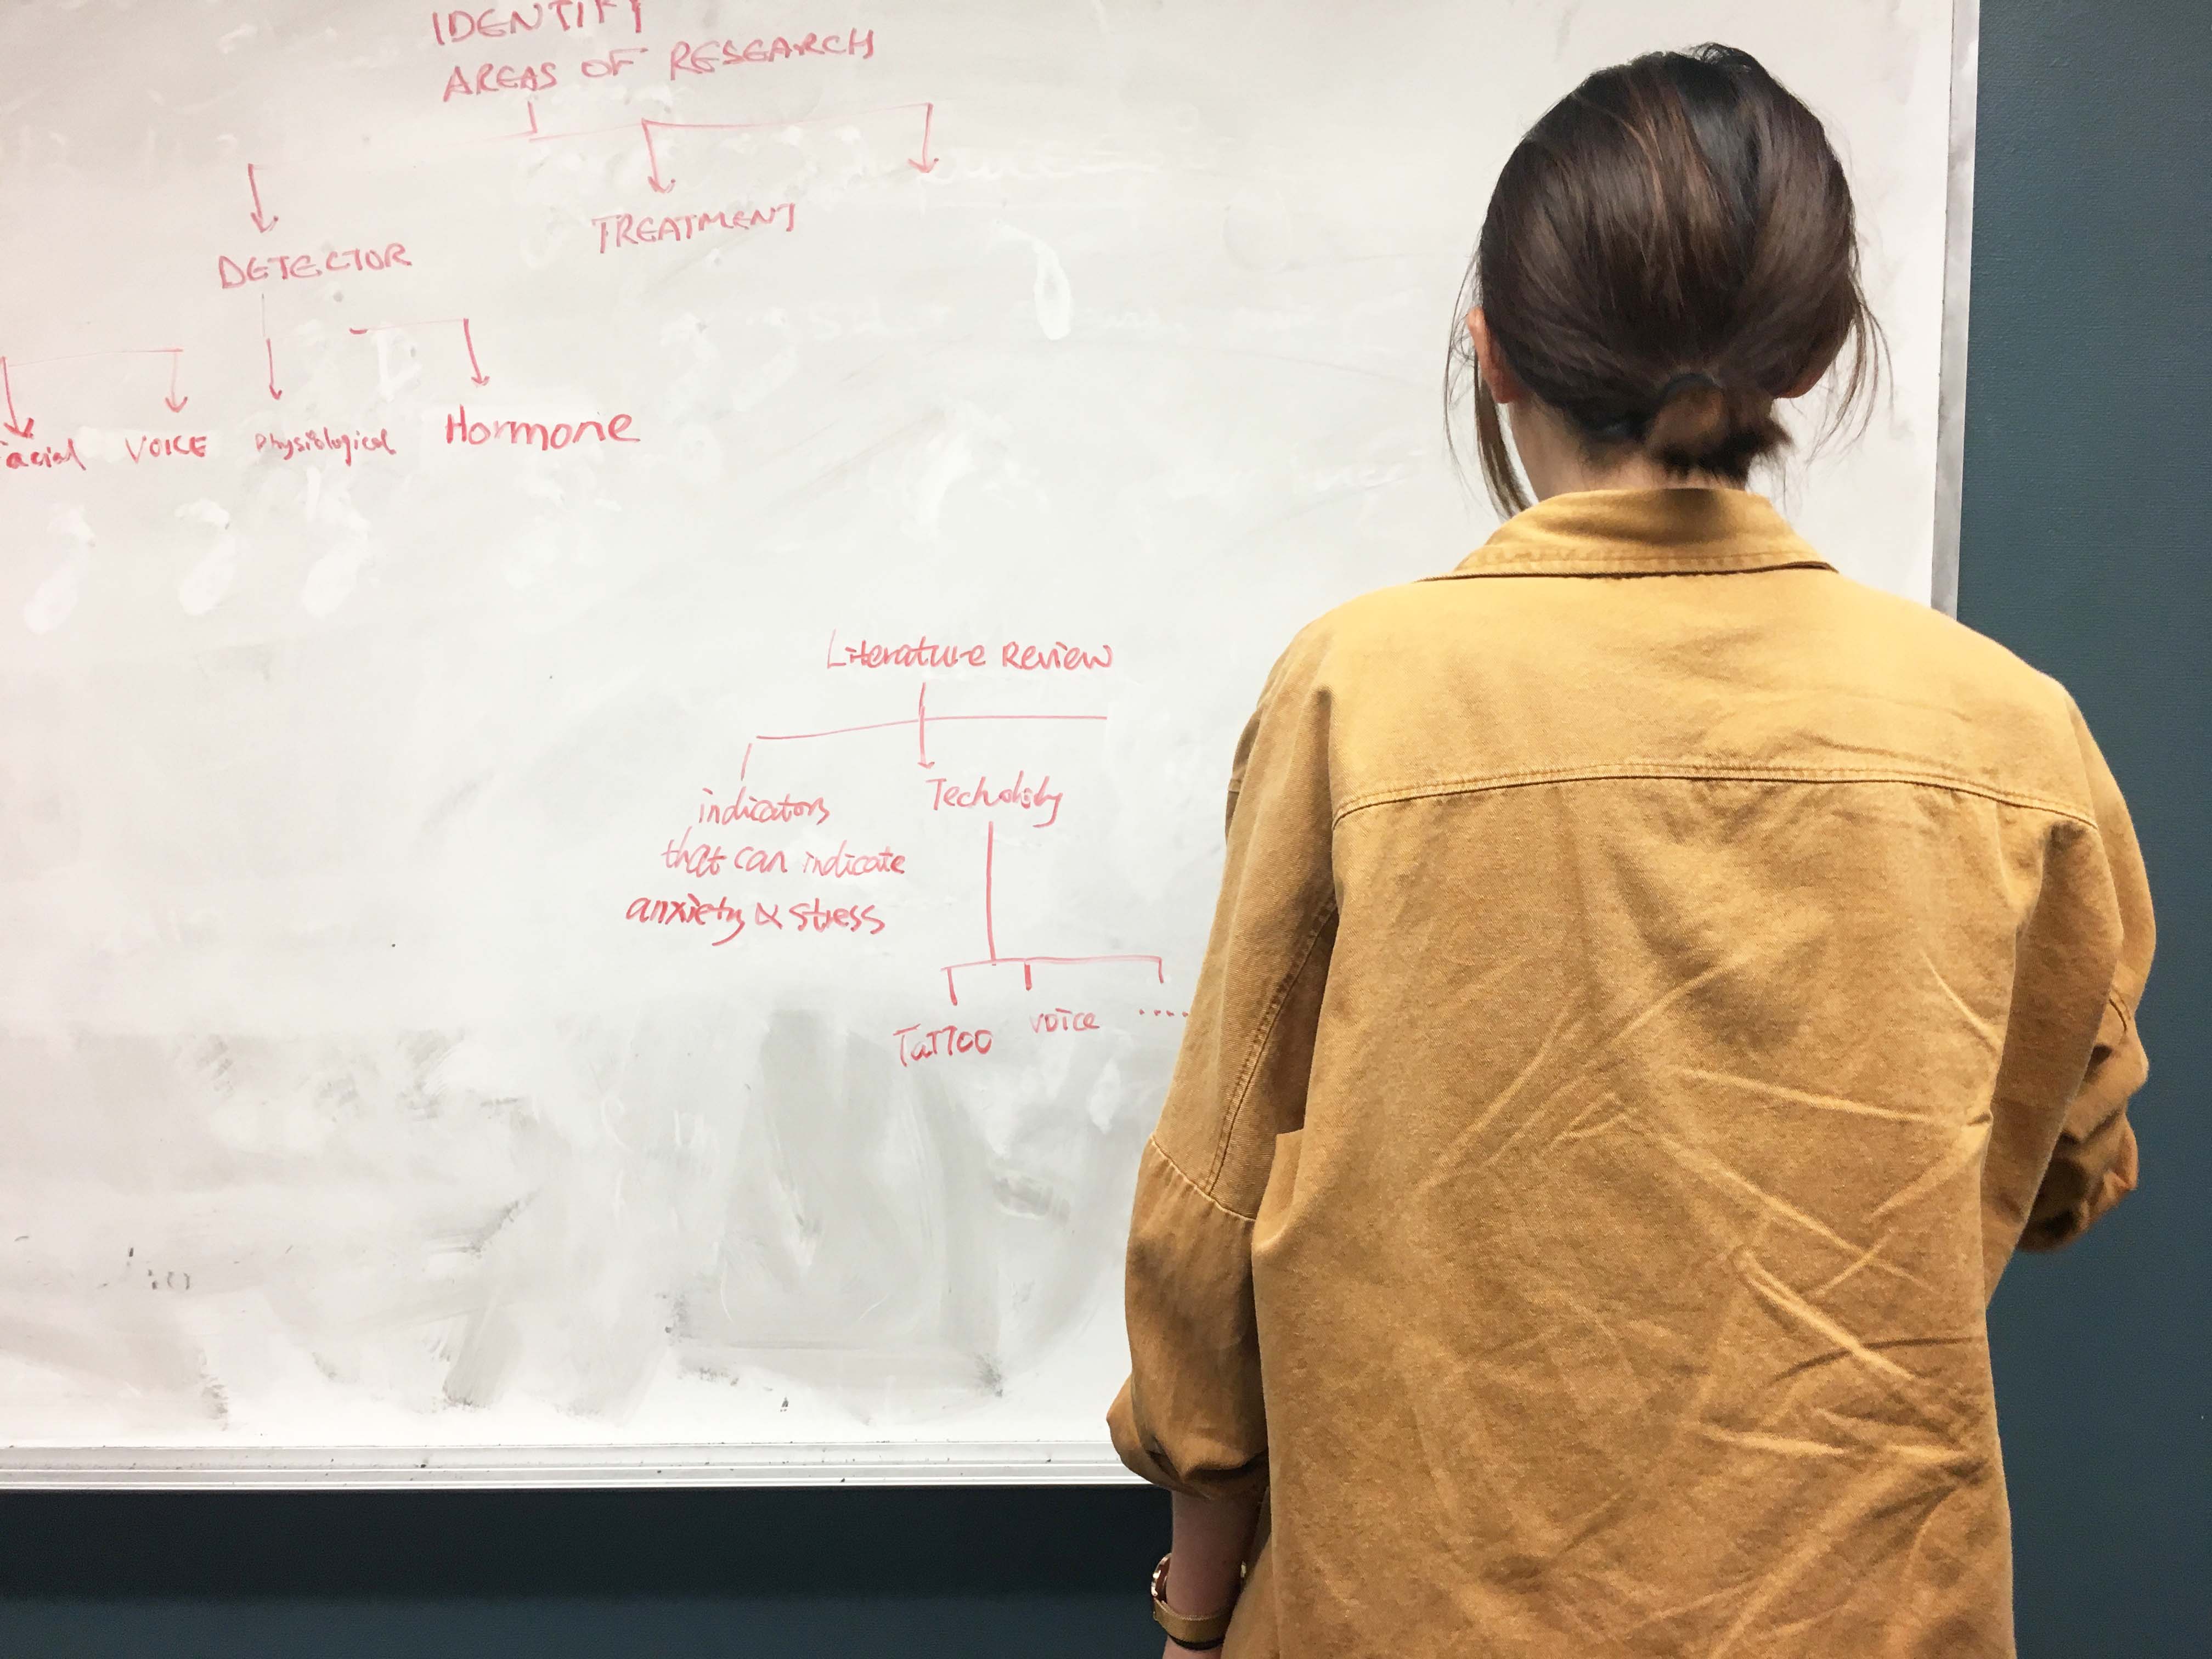 IDENTIFY
AREAS OF RESEARCH
TREATMENT
DETECTOR
acial VOICE Physiological Hormone
Literature Review
indicators
that can indicate
anxiety & stress
Techology
Tattoo voice .....